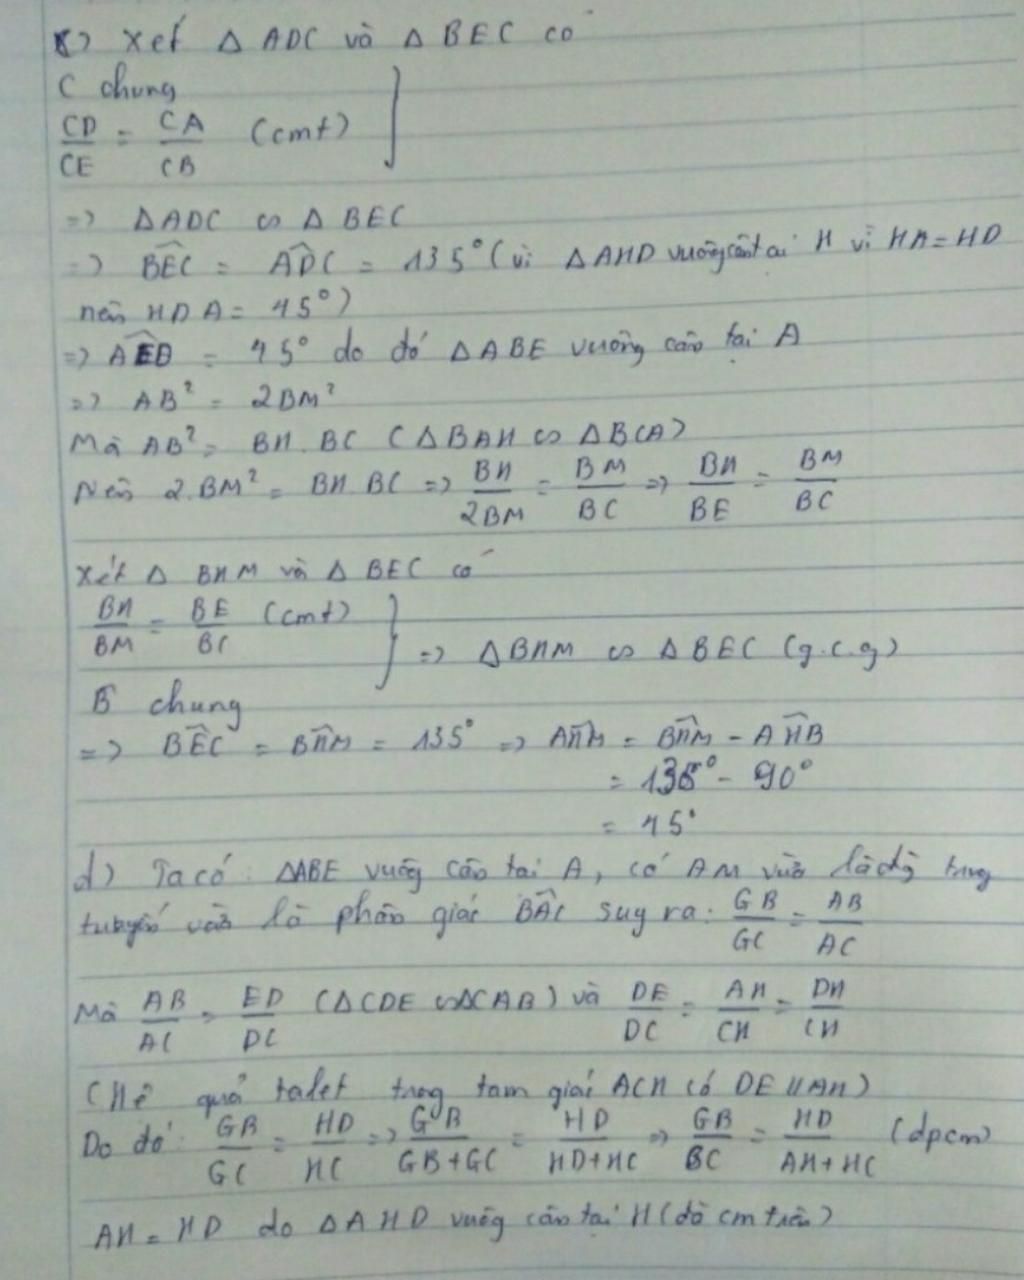 c) Xét Δ ADC và Δ BEC có
C chung
CD/CE = CA/CB (cmt)
=> ΔADC ∽ Δ BEC
=> BEC = ADC = 135° (vì ΔAHD vuông cân tại H vì HA = HD
nên HDA = 45°)
=> AEB = 45° do đó ΔABE vuông cân tại A
=> AB² = 2BM²
Mà AB² = BH. BC (ΔBAH ∽ ΔBCA)
Nên 2.BM² = BH.BC => BH/2BM = BM/BC => BH/BE = BM/BC
Xét Δ BHM và Δ BEC có
BH/BM = BE/BC (cmt)
} => ΔBHM ∽ ΔBEC (g.c.g)
B chung
=> BEC = BHM = 135° => AHM = BHM - AHB
= 135° - 90°
= 45°
d) Ta có: ΔABE vuông cân tại A, có AM vừa là đg trung
tuyến vừa là phân giác BAC suy ra: GB/GC = AB/AC
Mà AB/AC = ED/DC (ΔCDE ∽ΔCAB) và DE/DC = AH/CH = DH/CH
(Hệ quả talet trong tam giác ACH có DE // AH)
Do đó: GB/GC = HD/HC => GB/GB+GC = HD/HD+HC => GB/BC = HD/AH+HC (dpcm)
AH = HD do ΔAHD vuông cân tại H (đã cm trên)